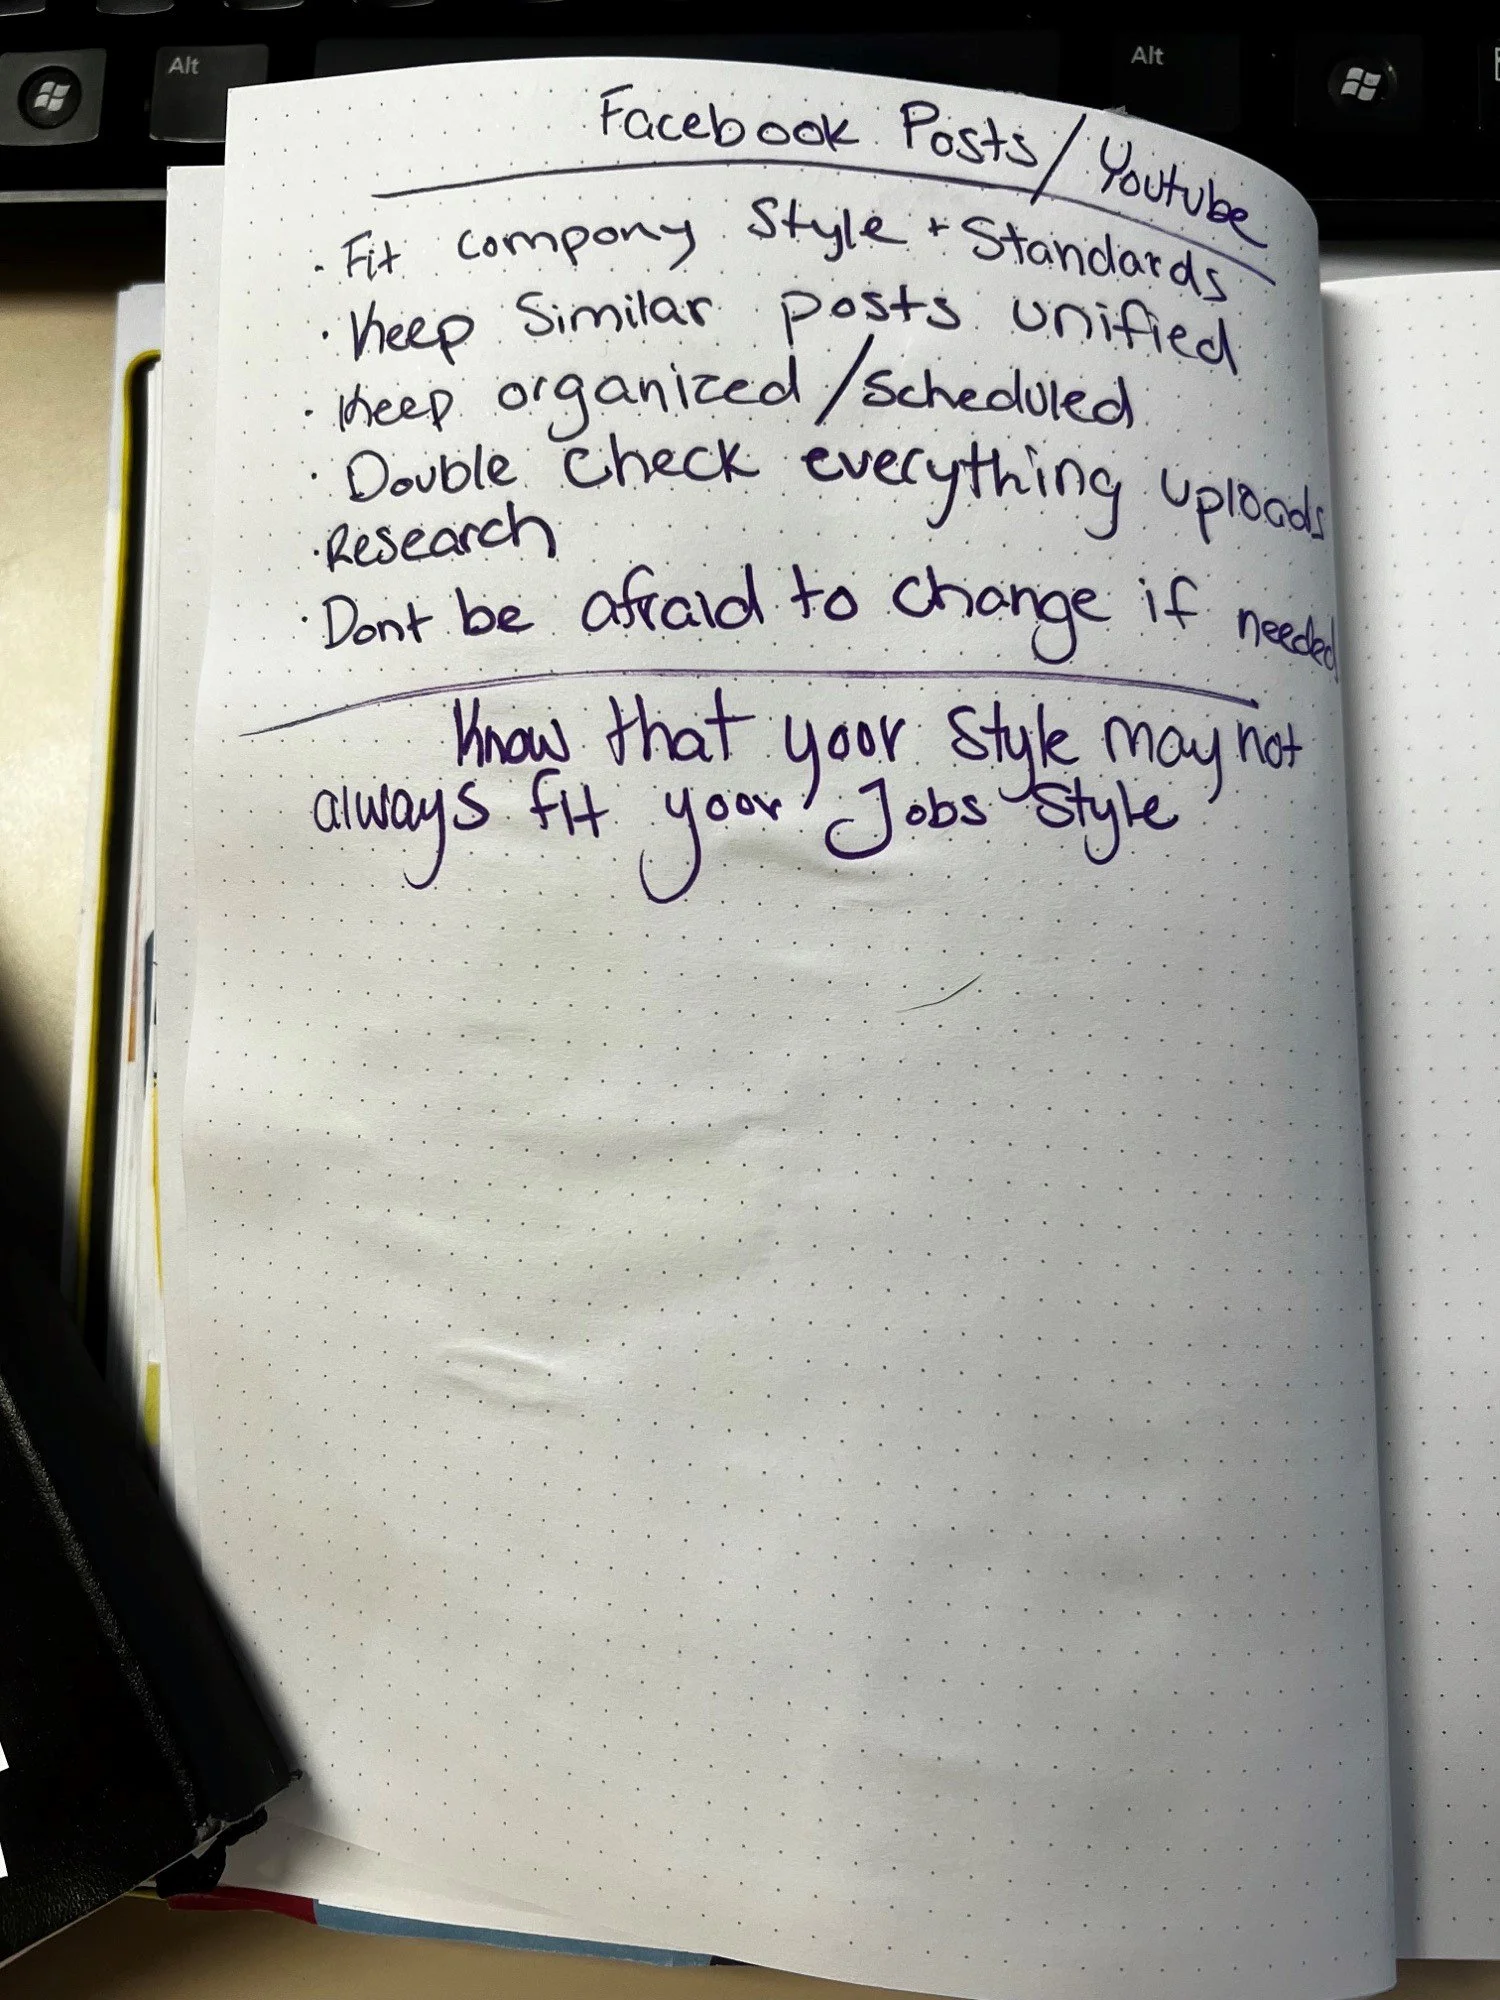 Alt
Alt
Facebook Posts/Youtube
· Fit company Style + Standards
· Keep Similar posts unified
· Keep organized/Scheduled
· Double check everything uploads
· Research
· Dont be afraid to change if needed
Know that your Style may not
always fit your Jobs Style